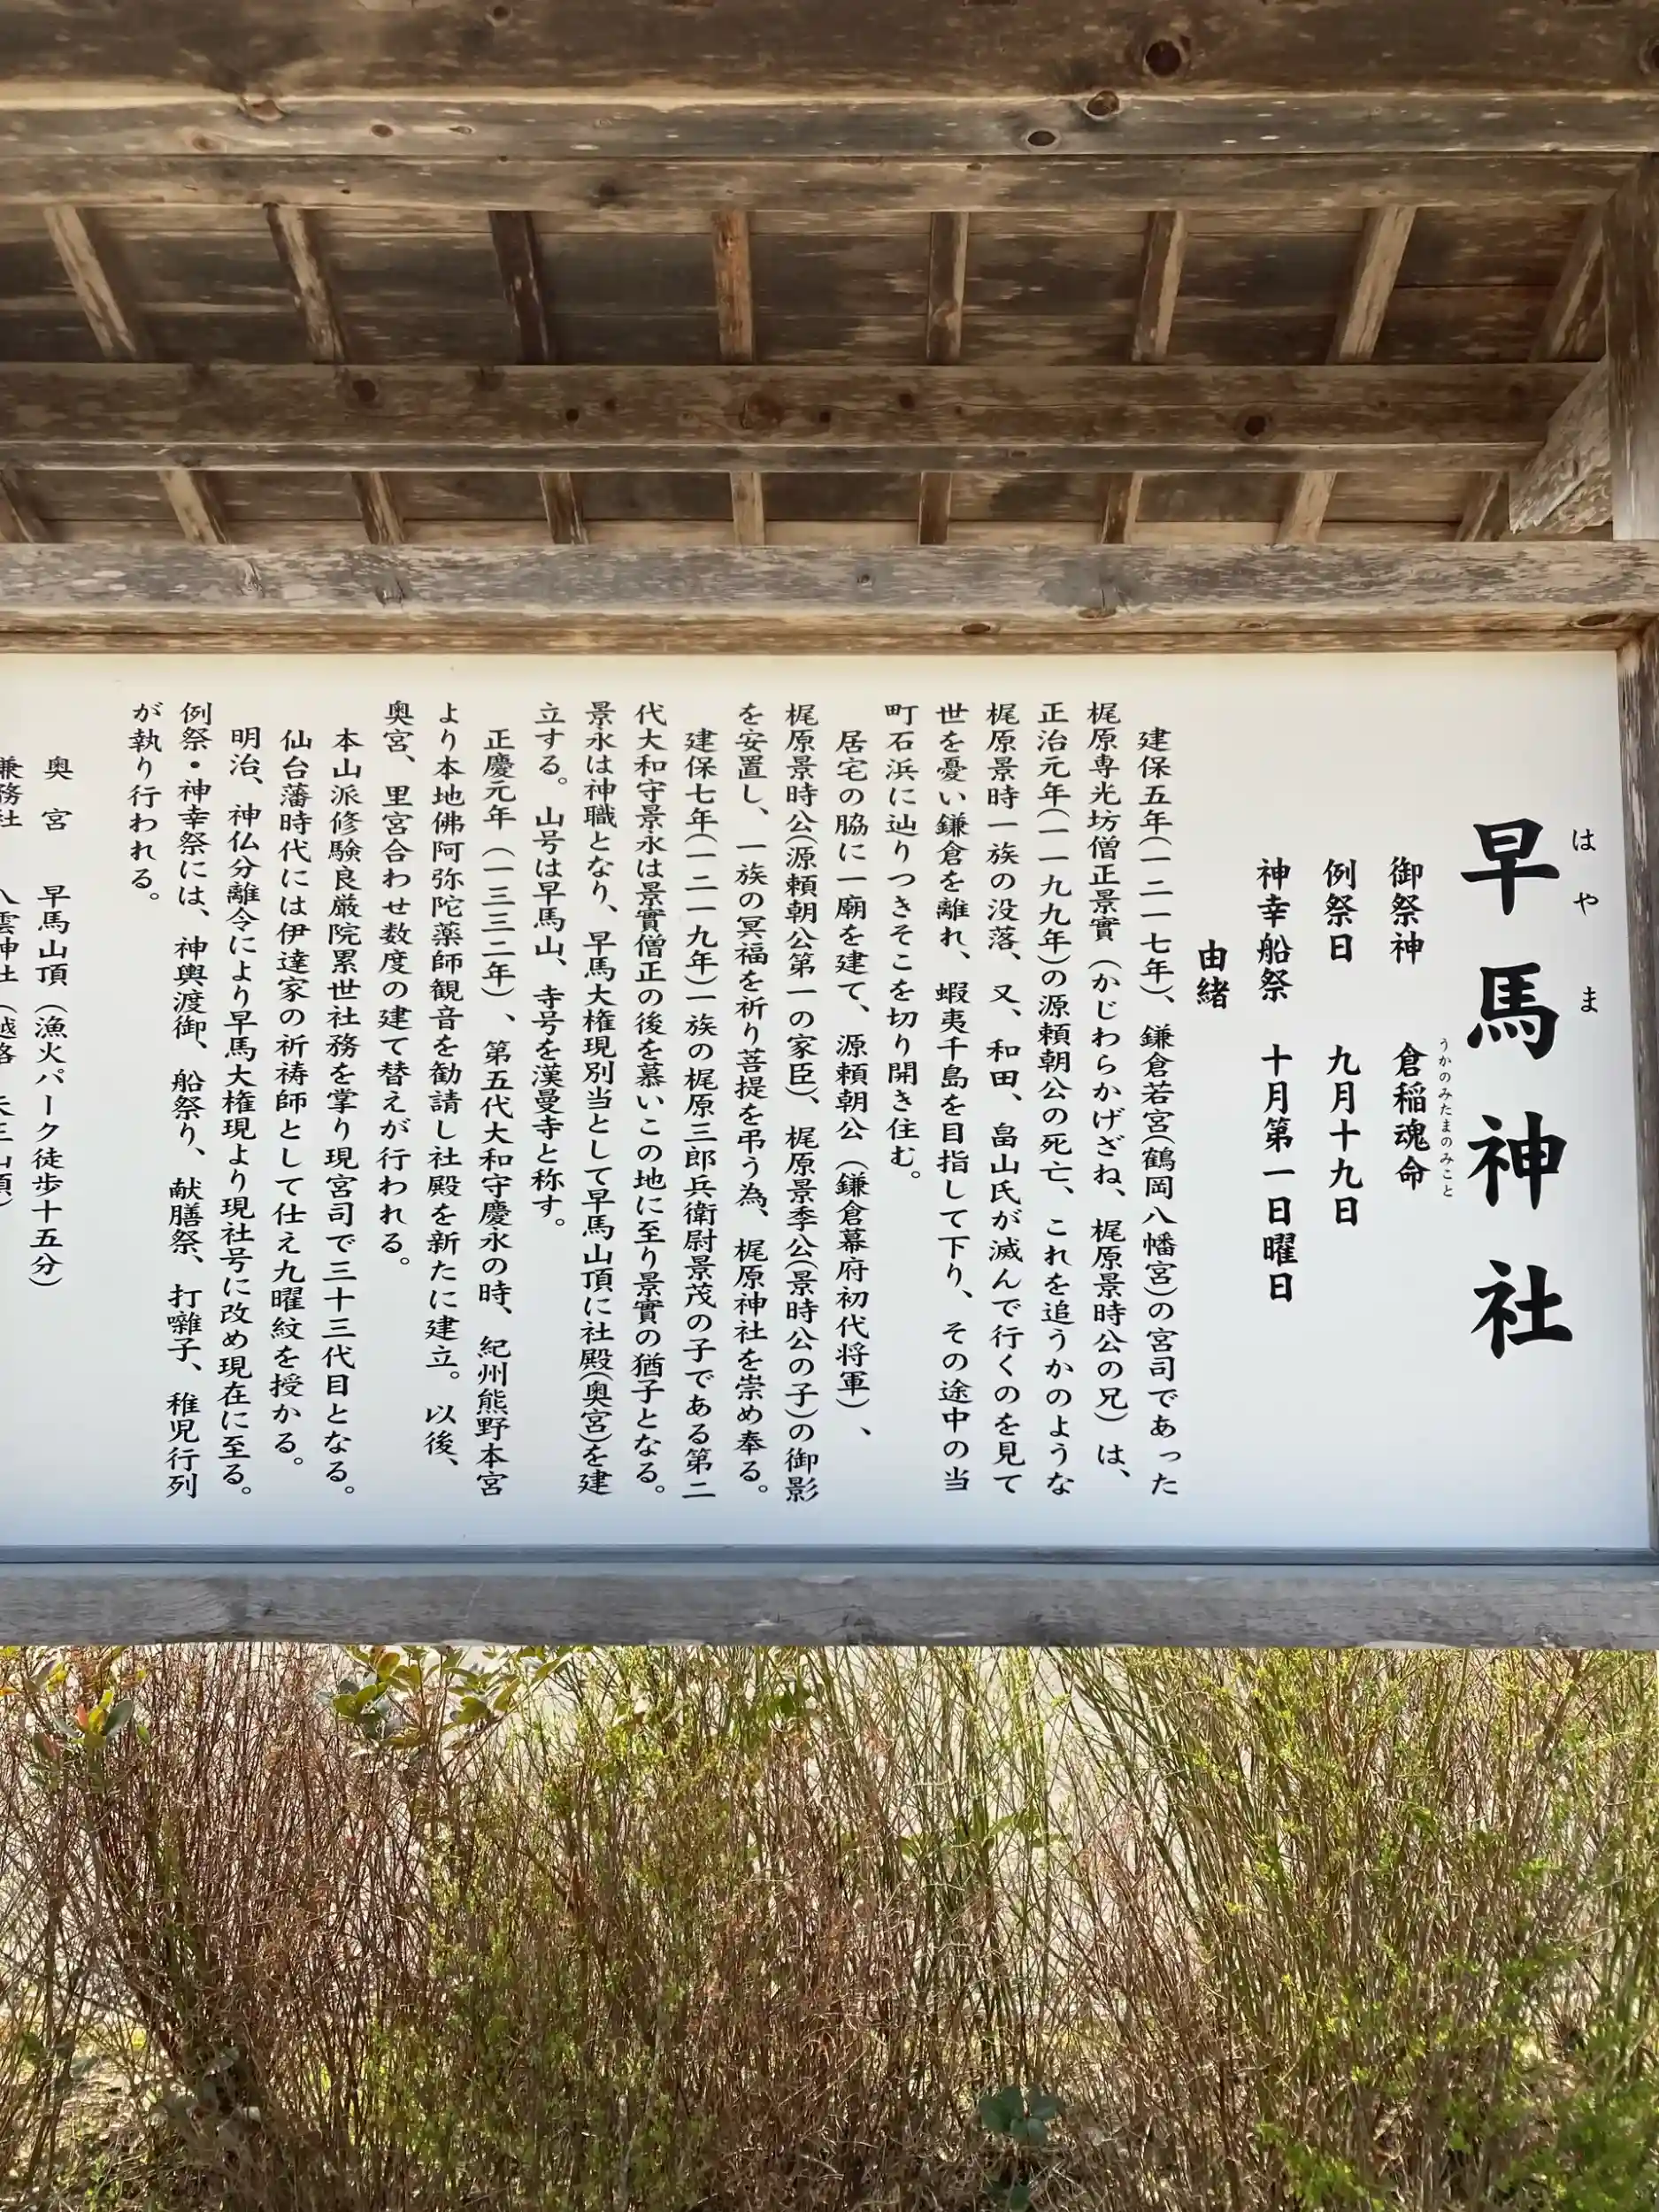 はやま
早馬神社
うかのみたまのみこと
御祭神 倉稲魂命
例祭日 九月十九日
神幸船祭 十月第一日曜日
由緒
建保五年(一二一七年)、鎌倉若宮(鶴岡八幡宮)の宮司であった
梶原専光坊僧正景實(かじわらかげざね、梶原景時公の兄)は、
正治元年(一一九九年)の源頼朝公の死亡、これを追うかのような
梶原景時一族の没落、又、和田、畠山氏が滅んで行くのを見て
世を憂い鎌倉を離れ、蝦夷千島を目指して下り、その途中の当
町石浜に辿りつきそこを切り開き住む。
居宅の脇に一廟を建て、源頼朝公(鎌倉幕府初代将軍)、
梶原景時公(源頼朝公第一の家臣)、梶原景季公(景時公の子)の御影
を安置し、一族の冥福を祈り菩提を弔う為、梶原神社を崇め奉る。
建保七年(一二一九年)一族の梶原三郎兵衛尉景茂の子である第二
代大和守景永は景實僧正の後を慕いこの地に至り景實の猶子となる。
景永は神職となり、早馬大権現別当として早馬山頂に社殿(奥宮)を建
立する。山号は早馬山、寺号を漢曼寺と称す。
正慶元年(一三三二年)、第五代大和守慶永の時、紀州熊野本宮
より本地佛阿弥陀薬師観音を勧請し社殿を新たに建立。以後、
奥宮、里宮合わせ数度の建て替えが行われる。
本山派修験良厳院累世社務を掌り現宮司で三十三代目となる。
仙台藩時代には伊達家の祈祷師として仕え九曜紋を授かる。
明治、神仏分離令により早馬大権現より現社号に改め現在に至る。
例祭・神幸祭には、神輿渡御、船祭り、献膳祭、打囃子、稚児行列
が執り行われる。
奥宮 早馬山頂(漁火パーク徒歩十五分)
兼務社 八雲神社